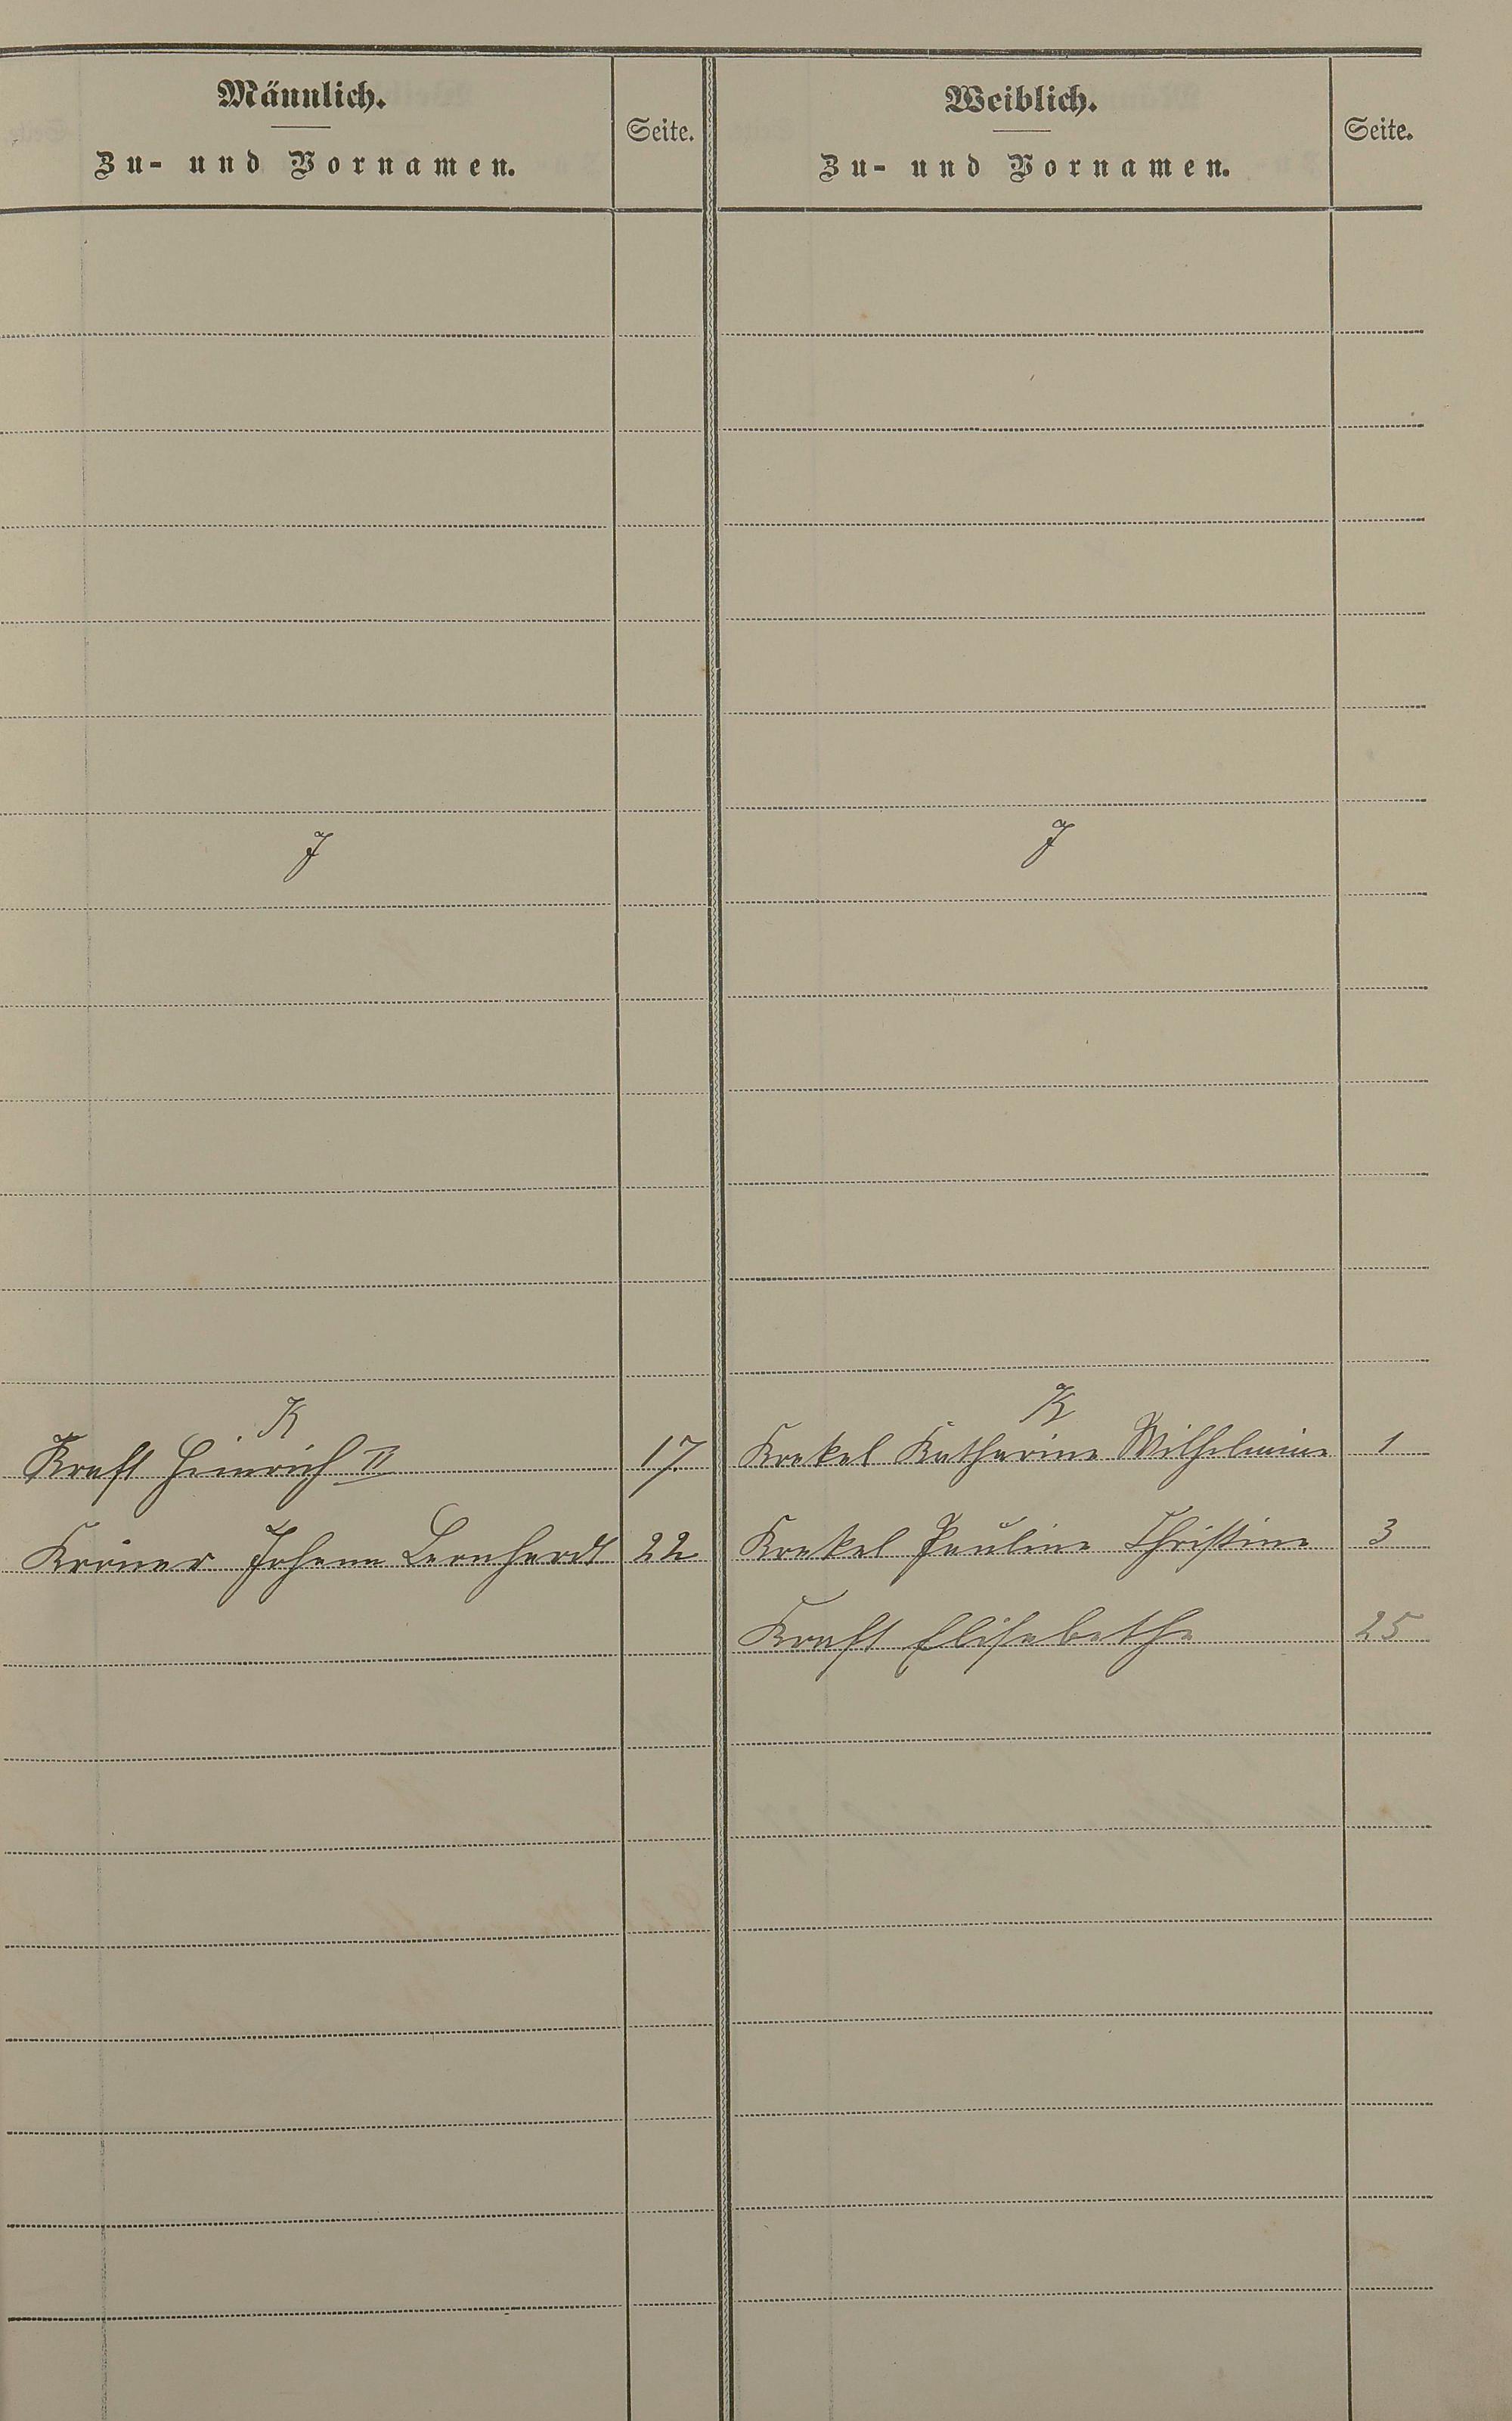 Männlich.
Zu- und Vornamen.
Seite.
Weiblich.
Zu- und Vornamen.
Seite.
J
J
K
Kraft Heinrich II 17.
Kröner Johann Bernhardt 22
K
Krekel Katharine Wilhelmine 1
Krekel Pauline Christine 3
Kraft Elisabethe 25